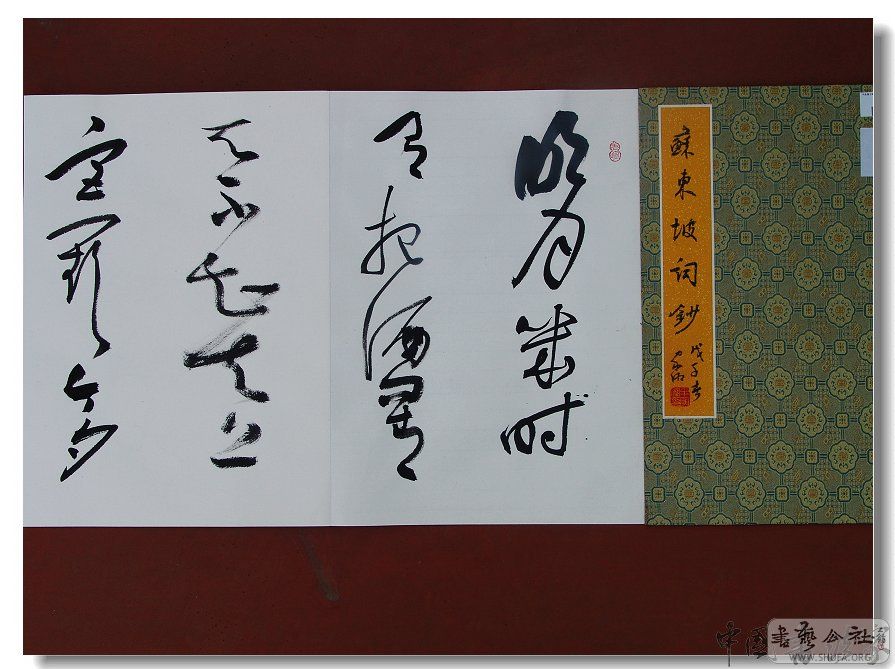 蘇東坡詞鈔
戊子春
明月幾时
有把酒问青
天不知天上
宫阙今夕
書藝公社
WWW.SHUFA.ORG